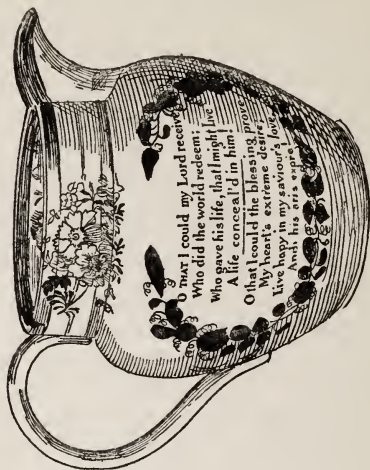 O THAT I could my Lord receive,
Who did the world redeem;
Who gave his life, that I might live
A life conceal'd in him!
O that I could the blessing prove,
My heart's extreme desire;
Live hapy in my saviour's love,
And in his arms expire!